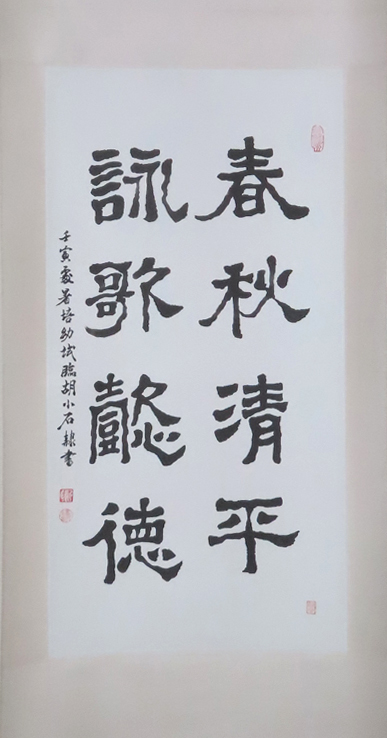 春秋清平
詠歌懿德
壬寅處暑培幼試臨胡小石隸書